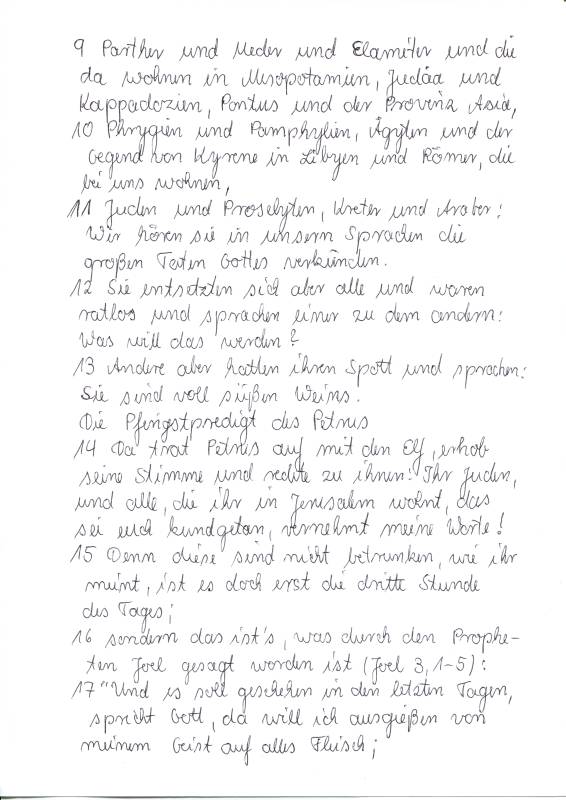 9 Parther und Meder und Elamiter und die
da wohnen in Mesopotamien, Judäa und
Kappadozien, Pontus und der Provinz Asia,
10 Phrygien und Pamphylien, Ägypten und der
Gegend von Kyrene in Libyen und Römer, die
bei uns wohnen,
11 Juden und Proselyten, Kreter und Araber:
Wir hören sie in unsern Sprachen die
großen Taten Gottes verkünden.
12 Sie entsetzten sich aber alle und waren
ratlos und sprachen einer zu dem andern:
Was will das werden?
13 Andere aber hatten ihren Spott und sprachen:
Sie sind voll süßen Weins.
Die Pfingstpredigt des Petrus
14 Da trat Petrus auf mit den Elf, erhob
seine Stimme und redete zu ihnen: Ihr Juden,
und alle, die ihr in Jerusalem wohnt, das
sei euch kundgetan, vernehmt meine Worte!
15 Denn diese sind nicht betrunken, wie ihr
meint, ist es doch erst die dritte Stunde
des Tages;
16 sondern das ist's, was durch den Prophe-
ten Joel gesagt worden ist (Joel 3,1-5):
17 "Und es soll geschehen in den letzten Tagen,
spricht Gott, da will ich ausgießen von
meinem Geist auf alles Fleisch;